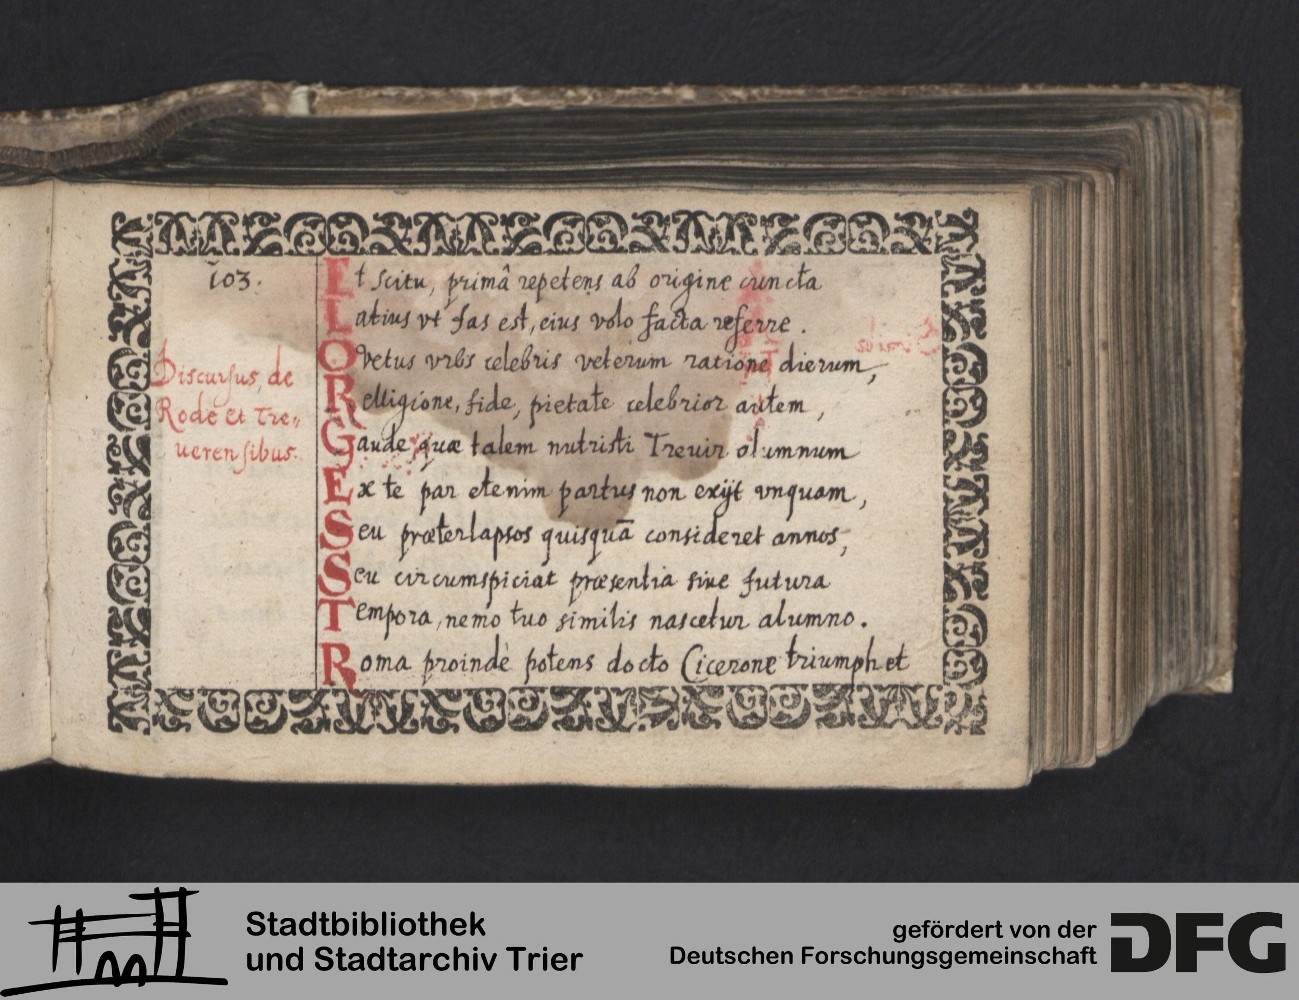 103.
Et scitu, primâ repetens ab origine cuncta
Latius vt fas est, eius volo facta referre.
O vetus vrbs celebris veterum ratione dierum,
Relligione, fide, pietate celebrior autem,
Gaude quæ talem nutristi Trevir olumnum
Ex te par etenim partus non exijt vnquam,
Seu præterlapsos quisquā consideret annos,
Seu circumspiciat præsentia sive futura
Tempora, nemo tuo similis nascetur alumno.
Roma proindè potens docto Cicerone triumphet
Discursus, de
Rode et Tre„
uerensibus.
Stadtbibliothek
und Stadtarchiv Trier
gefördert von der
Deutschen Forschungsgemeinschaft
DFG